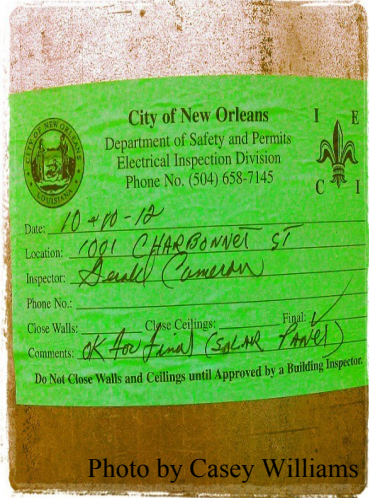 City of New Orleans
Department of Safety and Permits
Electrical Inspection Division
Phone No. (504) 658-7145
CITY OF NEW ORLEANS
LOUISIANA
I E
C I
Date: 10-10-12
Location: 1001 CHARBONNET ST
Inspector: Cameron
Phone No.:
Close Walls: Close Ceilings: Final: ✓
Comments: OK For Final (SOLAR PANEL)
Do Not Close Walls and Ceilings until Approved by a Building Inspector.
Photo by Casey Williams